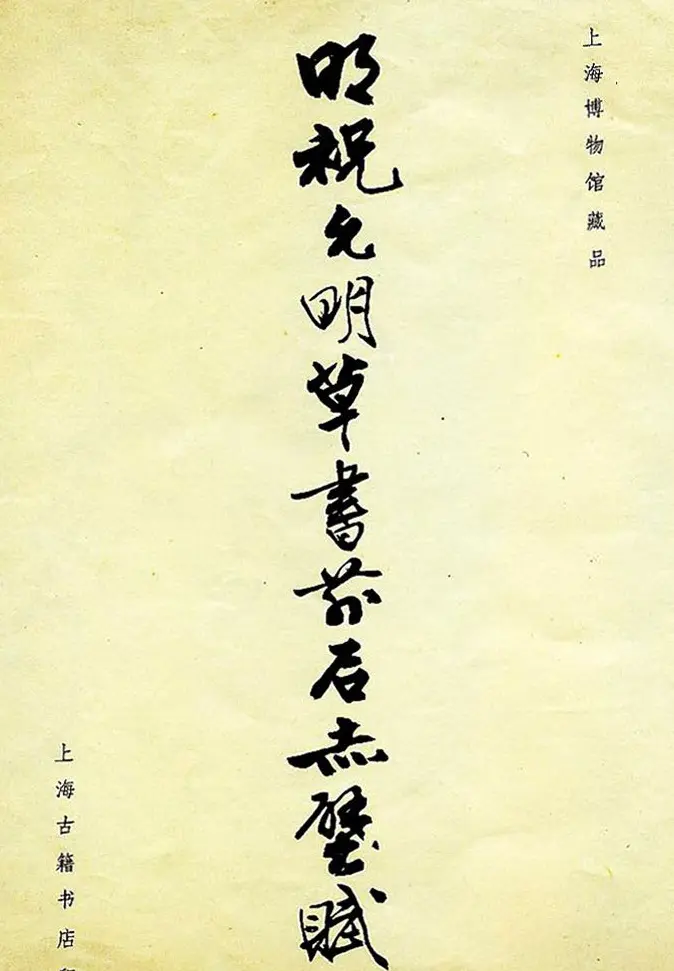 上海博物馆藏品
明祝允明草书前后赤壁赋
上海古籍书店